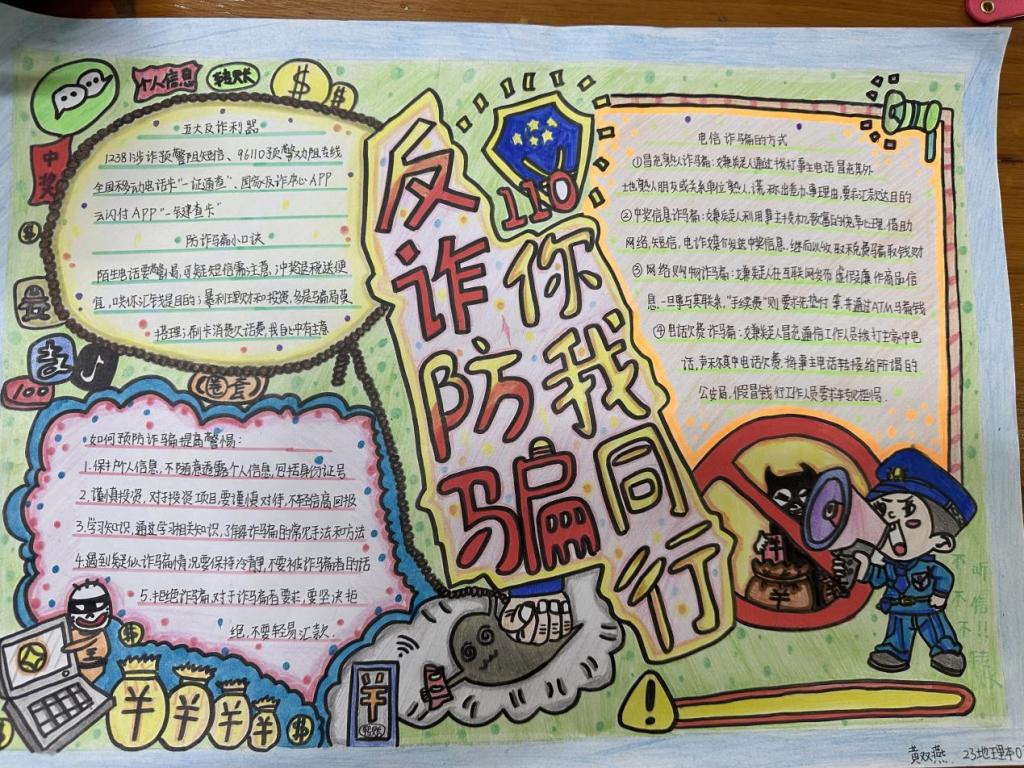 个人信息
转账
中奖
最
吉
100
圈套
五大反诈利器
12381涉诈预警阻短信、96110预警劝阻专线
全国移动电话卡"一证通查"、国家反诈中心APP
云闪付APP"一键查卡"
防诈骗小口诀
陌生电话要警惕,可疑短信需注意,中奖退税送便
搭理;刷卡消费欠话费,我自心中有主意
如何预防诈骗提高警惕:
1.保护个人信息,不随意透露个人信息,包括身份证号
2.谨慎投资,对于投资项目要谨慎对待,不轻信高回报
3.学习知识,通过学习相关知识,了解诈骗的常见手法和方法
4.遇到疑似诈骗情况要保持冷静,不要被诈骗者的话
5.拒绝诈骗,对于诈骗者要求,要坚决拒
绝,不要轻易汇款.
反诈防骗
110
你我同行
电信诈骗的方式
①冒充熟人诈骗:嫌疑人通过拨打事主电话冒充其外
地熟人朋友或关系单位熟人,谎称出差办事理由,要求汇款达目的
②中奖信息诈骗:嫌疑人利用事主投机致富的侥幸心理,借助
网络,短信,电话媒介发送中奖信息,继而以收取
③网络购物诈骗:嫌疑人在互联网发布虚假廉价商品信
息,一旦事主与其联系,"手续费"则要求先垫付 并通过ATM
④电话欠费诈骗:嫌疑人冒充通信工作人员拨打主家中电
话,声称其中电话欠费,将事主电话转接给所谓的
公安局,假冒银行工作人员要求
不听
不信!!
不转账
黄双燕 23地理本